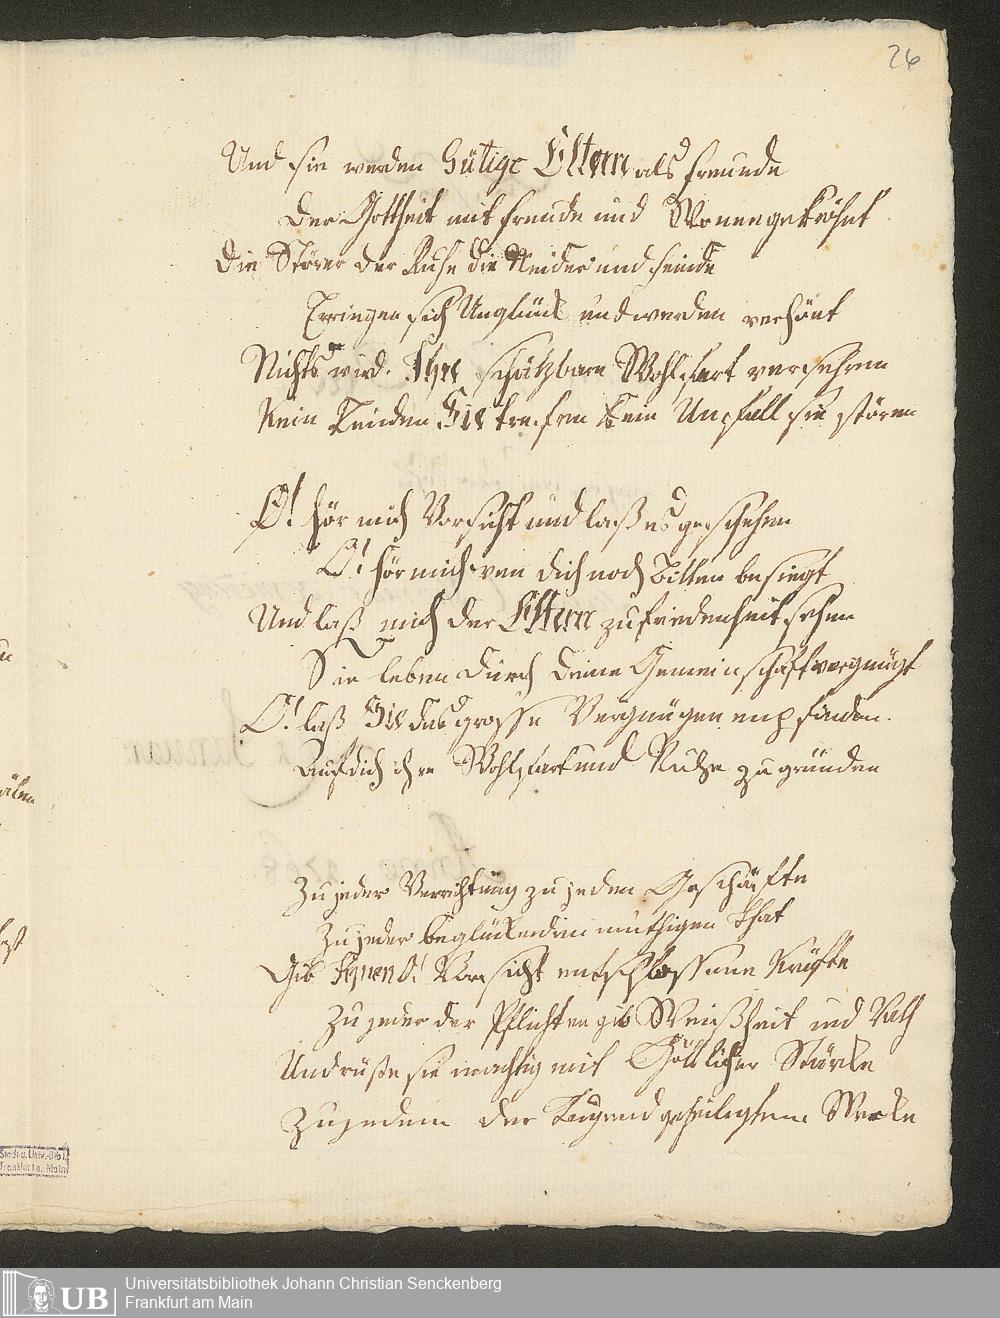 26
Und sie werden Gütige Eltern als freunde
Der Gottheit mit freude und Wonne gekröhnt
Die Störer der Ruhe die Neider und feinde
Erringen sich Unglück und werden verhönt
Nichts wird Ihre schätzbare Wohlfart versehren
Kein Leiden Sie treffen kein Unfall sie stören
O! hör mich Vorsicht und laß es geschehen
O! hör mich von dich noch Bitten besiegt
Und laß mich der Eltern zufriedenheit sehen
Sie leben durch deine Gemeinschaft vergnügt
O! laß Sie das grosse Vergnügen enpfinden.
Auf dich ihre Wohlfart und Ruhe zu gründen
Zu jeder Verrichtung zu jedem Geschäfte
Zu jeder beglückenden muthigen That
Gib Ihnen O! Vorsicht entschlossene Kräfte
Zu jeder der Pflichten gib Weißheit und Rath
Und rüste sie mächtig mit Göttlicher Stärke
Zu jedem der Tugend geheiligtem Werke
Stadt-u. Univ.-Bibl.
Frankfurt a. Main
UB
Universitätsbibliothek Johann Christian Senckenberg
Frankfurt am Main